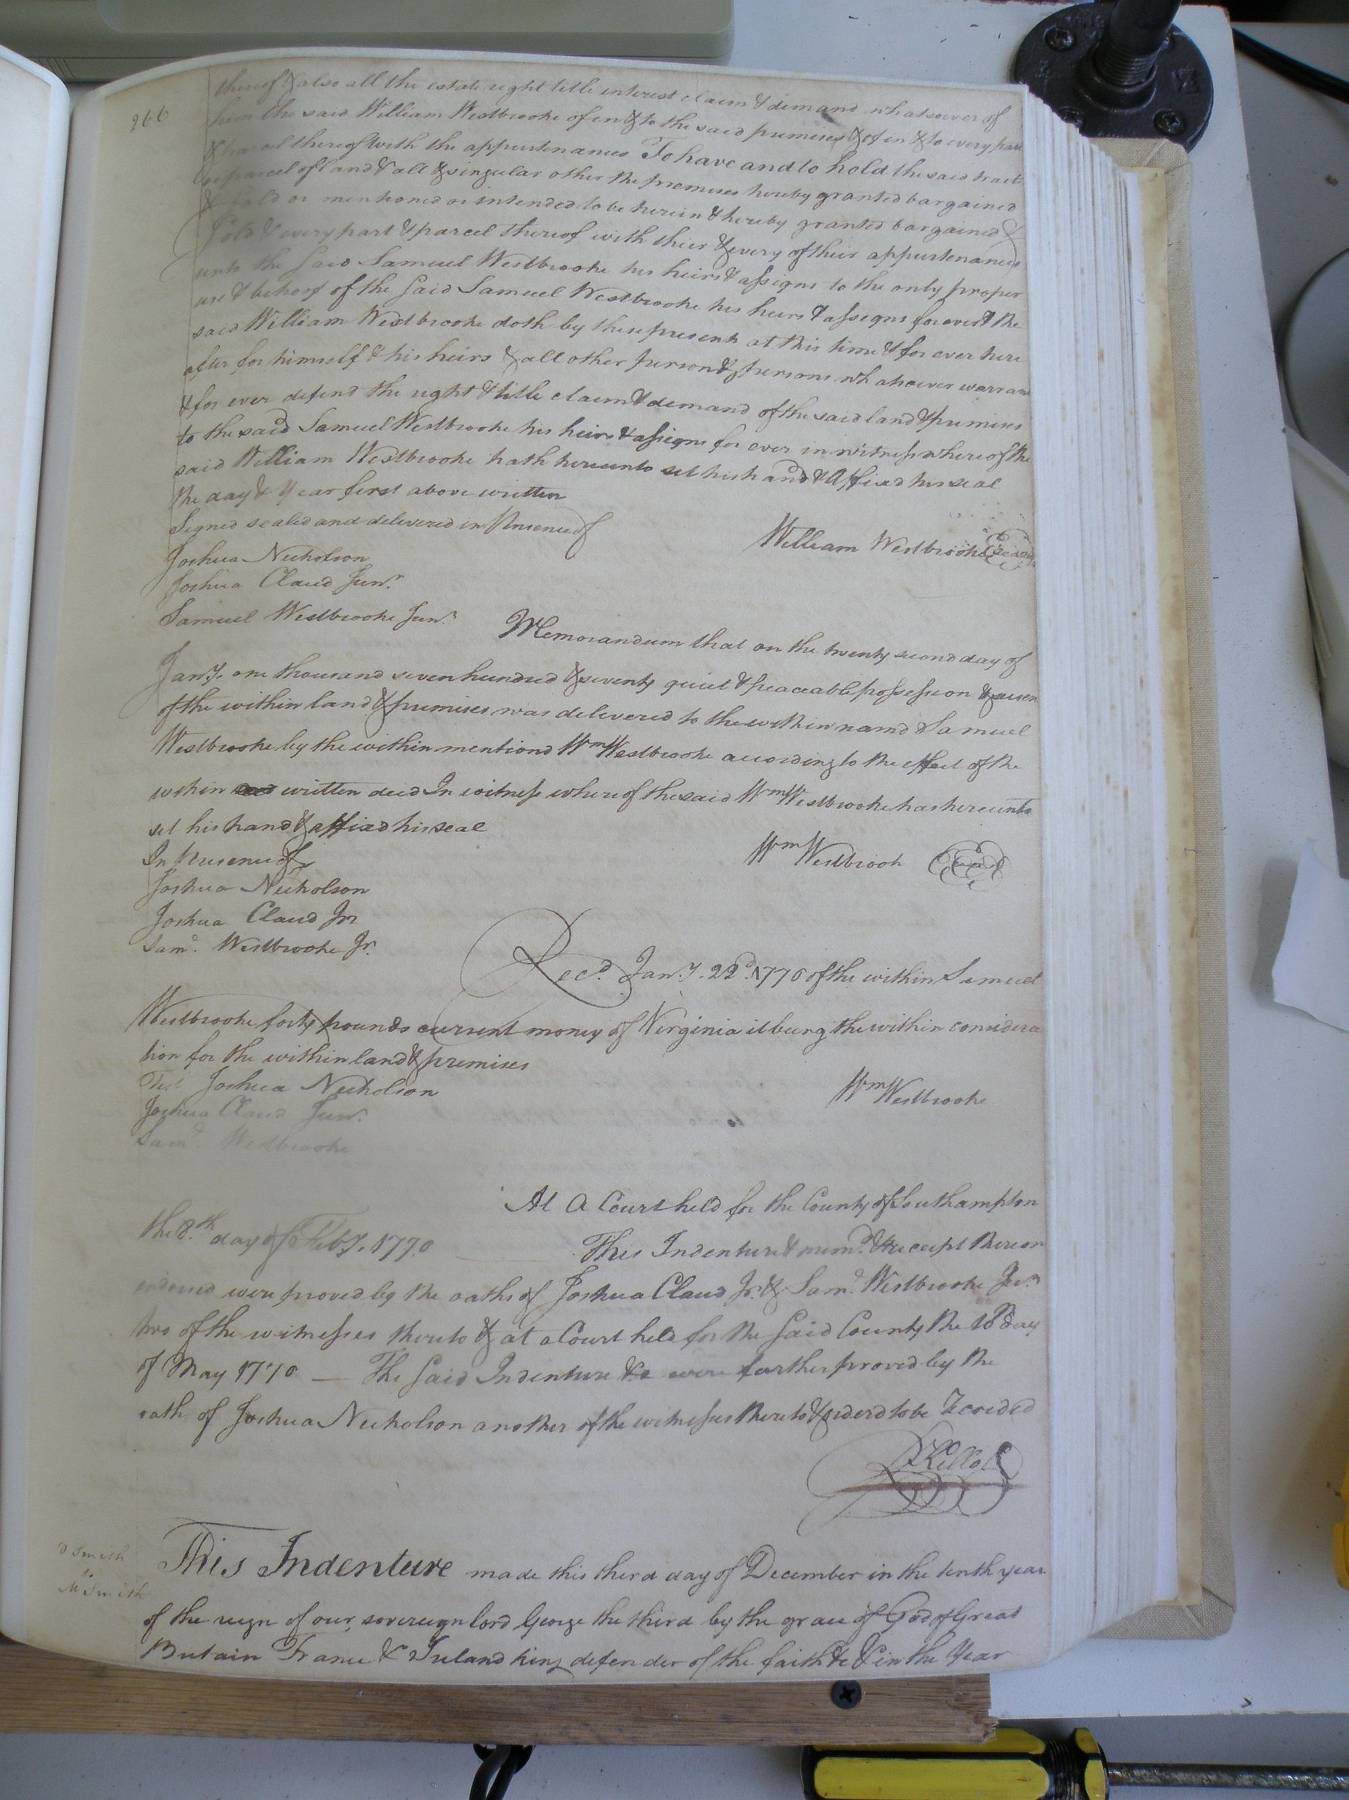 266
thereof & also all the estate right title interest claim & demand whatsoever of
him the said William Westbrooke of in & to the said premises & of in & to every part
& parcel thereof with the appurtenances To have and to hold the said tract
or parcel of land & all & singular other the premises hereby granted bargained
& sold or mentioned or intended to be herein & hereby granted bargained &
sold & every part & parcel thereof with their & every of their appurtenances
unto the said Samuel Westbrooke his heirs & assigns to the only proper
use & behoof of the said Samuel Westbrooke his heirs & assigns forever & the
said William Westbrooke doth by these presents at this time & for ever here
after for himself & his heirs & all other person & persons whatsoever warrant
& for ever defend the right & title claim & demand of the said land & premises
to the said Samuel Westbrooke his heirs & assigns for ever in witness whereof the
said William Westbrooke hath hereunto set his hand & Affixed his seal
the day & Year first above written
Signed sealed and delivered in Presence of
William Westbrooke Seal
Joshua Nicholson
Joshua Claud Junr.
Samuel Westbrooke Junr.
Memorandum that on the twenty second day of
Jany. one thousand seven hundred & seventy quiet & peaceable possession & seisen
of the within land & premises was delivered to the within namd Samuel
Westbrooke by the within mentiond Wm Westbrooke according to the effect of the
within written deed In witness whereof the said Wm Westbrooke has hereunto
set his hand & affixd his seal
In Presence of
Wm Westbrook Seal
Joshua Nicholson
Joshua Claud Jr.
Saml. Westbrooke Jr.
Recd. Jany. 22d. 1770 of the within Samuel
Westbrooke forty pounds current money of Virginia it being the within considera
tion for the within land & premises
Test Joshua Nicholson
Wm Westbrooke
Joshua Claud Junr.
Saml Westbrooke
At A Court held for the County of Southampton
the 8.th day of Feby. 1770
This Indenture & memd. & receipt thereon
endorsed were proved by the oaths of Joshua Claud Jr. & Saml. Westbrooke Jr.
two of the witnesses thereto & at a Court held for the said County the 10 day
of May 1770 — The said Indenture &c were further proved by the
oath of Joshua Nicholson another of the witnesses thereto & orderd to be Recorded
Smith
Smith
This Indenture made this third day of December in the tenth year
of the reign of our sovereign lord George the third by the grace of God of Great
Britain France & Ireland king defender of the faith &c & in the Year